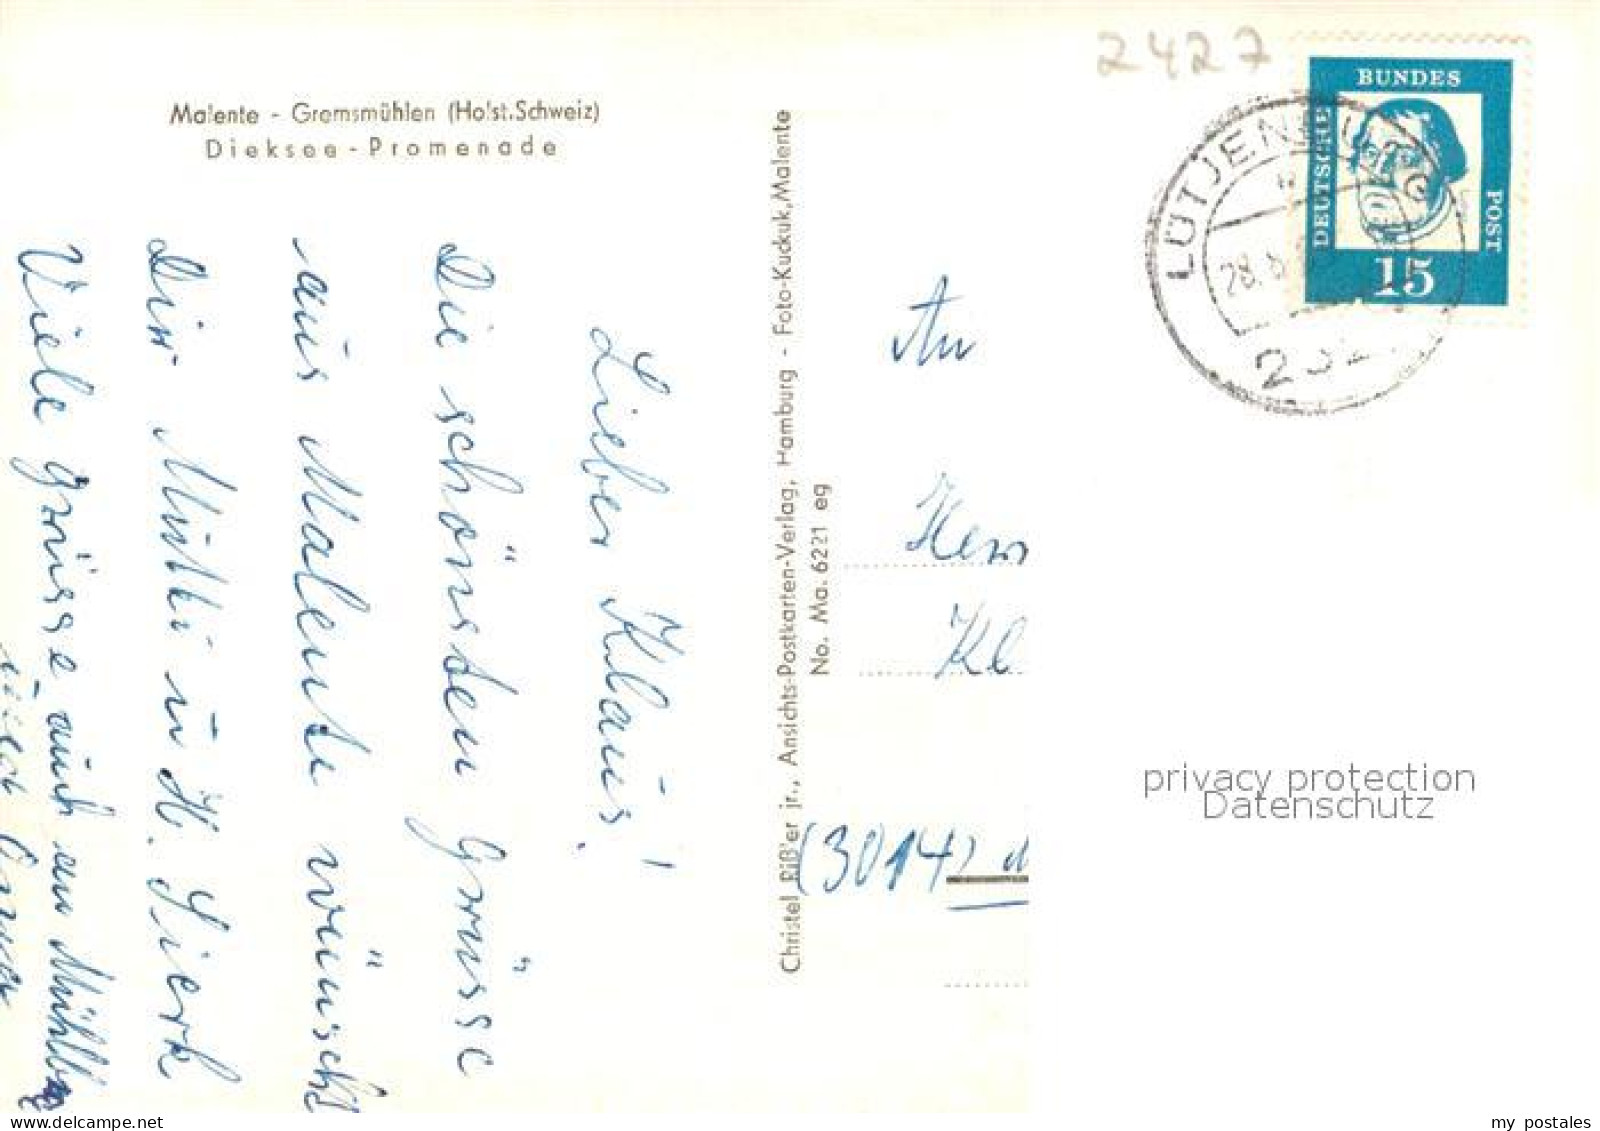 2427
Malente - Gremsmühlen (Holst. Schweiz)
Dieksee - Promenade
BUNDES
DEUTSCHE
POST
15
LÜTJENBURG
28.8
232
Lieber Klaus!
Die schönsten Grüsse
aus Malente wünscht
Dir Mutti u H. Sierk
Viele Grüsse auch an
Christel Rißler jr., Ansichts-Postkarten-Verlag, Hamburg - Foto-Kuckuk, Malente
No. Ma. 6221 eg
An
Herr
Kl
(3014)
privacy protection
Datenschutz
www.delcampe.net
my postales